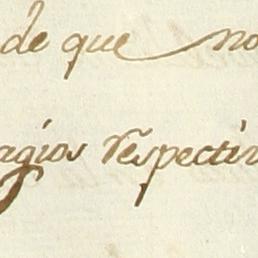 de que no
agios respectiv